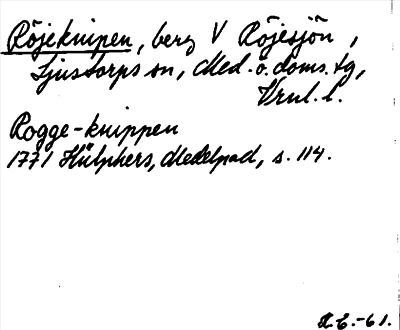 Röjeknipen, berg V Röjesjön,
Ljustorps sn, Med. ö. doms. tg,
Vrnl. l.
Rogge-knippen
1771 Hülphers, Medelpad, s. 114.
-61.